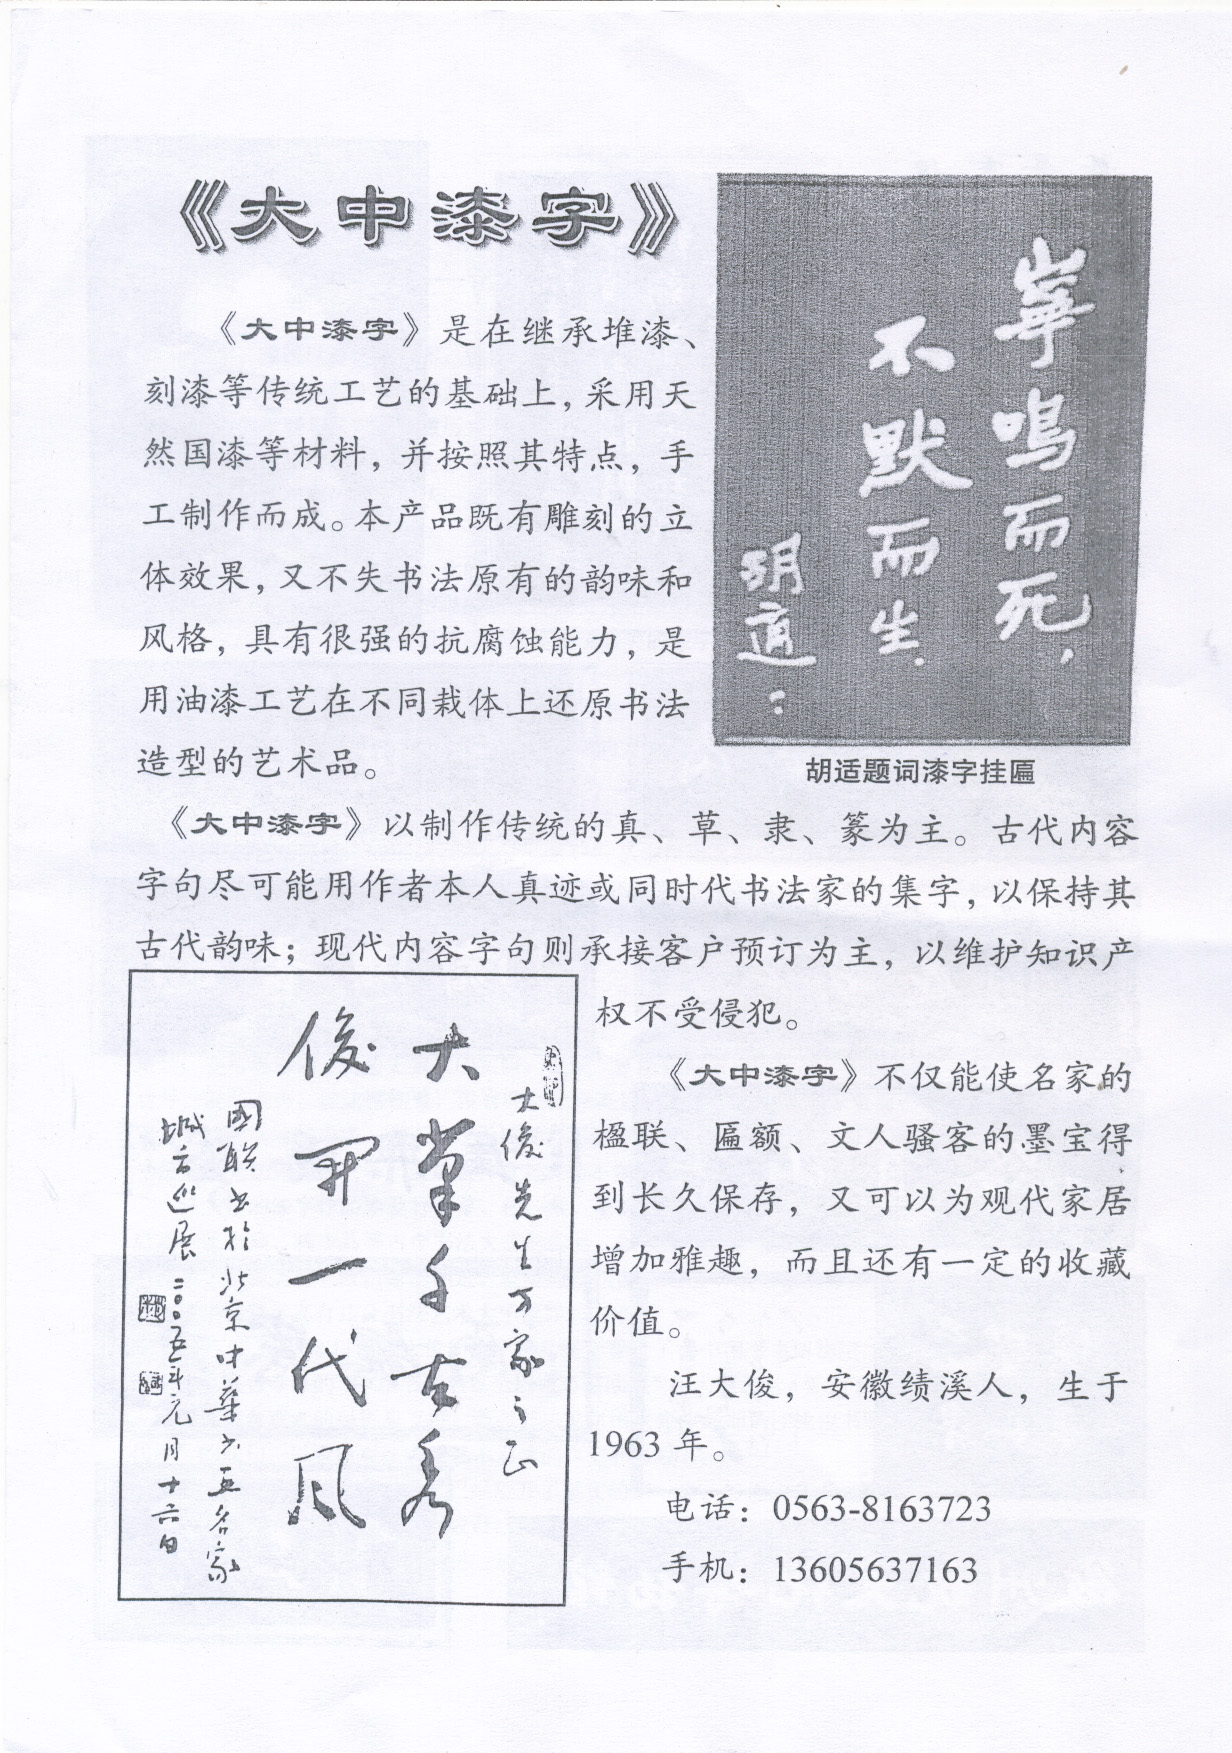 《大中漆字》
《大中漆字》是在继承堆漆、
刻漆等传统工艺的基础上，采用天
然国漆等材料，并按照其特点，手
工制作而成。本产品既有雕刻的立
体效果，又不失书法原有的韵味和
风格，具有很强的抗腐蚀能力，是
用油漆工艺在不同栽体上还原书法
造型的艺术品。
寧鳴而死，
不默而生.
胡適：
胡适题词漆字挂匾
《大中漆字》以制作传统的真、草、隶、篆为主。古代内容
字句尽可能用作者本人真迹或同时代书法家的集字，以保持其
古代韵味；现代内容字句则承接客户预订为主，以维护知识产
权不受侵犯。
大俊先生方家之正
大笔千古秀
俊开一代风
國联书於北京中华六五名家
城六巡展二〇〇五年元月十六日
《大中漆字》不仅能使名家的
楹联、匾额、文人骚客的墨宝得
到长久保存，又可以为观代家居
增加雅趣，而且还有一定的收藏
价值。
汪大俊，安徽绩溪人，生于
1963 年。
电话：0563-8163723
手机：13605637163